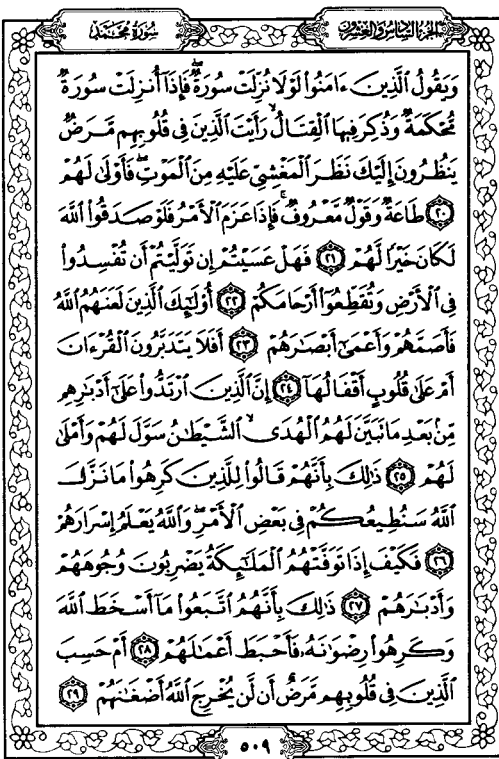 سُورَةُ مُحَمَّد
الجُزْءُ السَّادِسُ وَالعِشْرُونَ
وَيَقُولُ ٱلَّذِينَ ءَامَنُوا۟ لَوْلَا نُزِّلَتْ سُورَةٌۖ فَإِذَآ أُنزِلَتْ سُورَةٌ
مُّحْكَمَةٌ وَذُكِرَ فِيهَا ٱلْقِتَالُۙ رَأَيْتَ ٱلَّذِينَ فِى قُلُوبِهِم مَّرَضٌ
يَنظُرُونَ إِلَيْكَ نَظَرَ ٱلْمَغْشِىِّ عَلَيْهِ مِنَ ٱلْمَوْتِۖ فَأَوْلَىٰ لَهُمْ
٢٠ طَاعَةٌ وَقَوْلٌ مَّعْرُوفٌۚ فَإِذَا عَزَمَ ٱلْأَمْرُ فَلَوْ صَدَقُوا۟ ٱللَّهَ
لَكَانَ خَيْرًا لَّهُمْ ٢١ فَهَلْ عَسَيْتُمْ إِن تَوَلَّيْتُمْ أَن تُفْسِدُوا۟
فِى ٱلْأَرْضِ وَتُقَطِّعُوٓا۟ أَرْحَامَكُمْ ٢٢ أُو۟لَٰٓئِكَ ٱلَّذِينَ لَعَنَهُمُ ٱللَّهُ
فَأَصَمَّهُمْ وَأَعْمَىٰٓ أَبْصَٰرَهُمْ ٢٣ أَفَلَا يَتَدَبَّرُونَ ٱلْقُرْءَانَ
أَمْ عَلَىٰ قُلُوبٍ أَقْفَالُهَآ ٢٤ إِنَّ ٱلَّذِينَ ٱرْتَدُّوا۟ عَلَىٰٓ أَدْبَٰرِهِم
مِّنۢ بَعْدِ مَا تَبَيَّنَ لَهُمُ ٱلْهُدَىۙ ٱلشَّيْطَٰنُ سَوَّلَ لَهُمْ وَأَمْلَىٰ
لَهُمْ ٢٥ ذَٰلِكَ بِأَنَّهُمْ قَالُوا۟ لِلَّذِينَ كَرِهُوا۟ مَا نَزَّلَ
ٱللَّهُ سَنُطِيعُكُمْ فِى بَعْضِ ٱلْأَمْرِۖ وَٱللَّهُ يَعْلَمُ إِسْرَارَهُمْ
٢٦ فَكَيْفَ إِذَا تَوَفَّتْهُمُ ٱلْمَلَٰٓئِكَةُ يَضْرِبُونَ وُجُوهَهُمْ
وَأَدْبَٰرَهُمْ ٢٧ ذَٰلِكَ بِأَنَّهُمُ ٱتَّبَعُوا۟ مَآ أَسْخَطَ ٱللَّهَ
وَكَرِهُوا۟ رِضْوَٰنَهُۥ فَأَحْبَطَ أَعْمَٰلَهُمْ ٢٨ أَمْ حَسِبَ
ٱلَّذِينَ فِى قُلُوبِهِم مَّرَضٌ أَن لَّن يُخْرِجَ ٱللَّهُ أَضْغَٰنَهُمْ ٢٩
٥٠٩